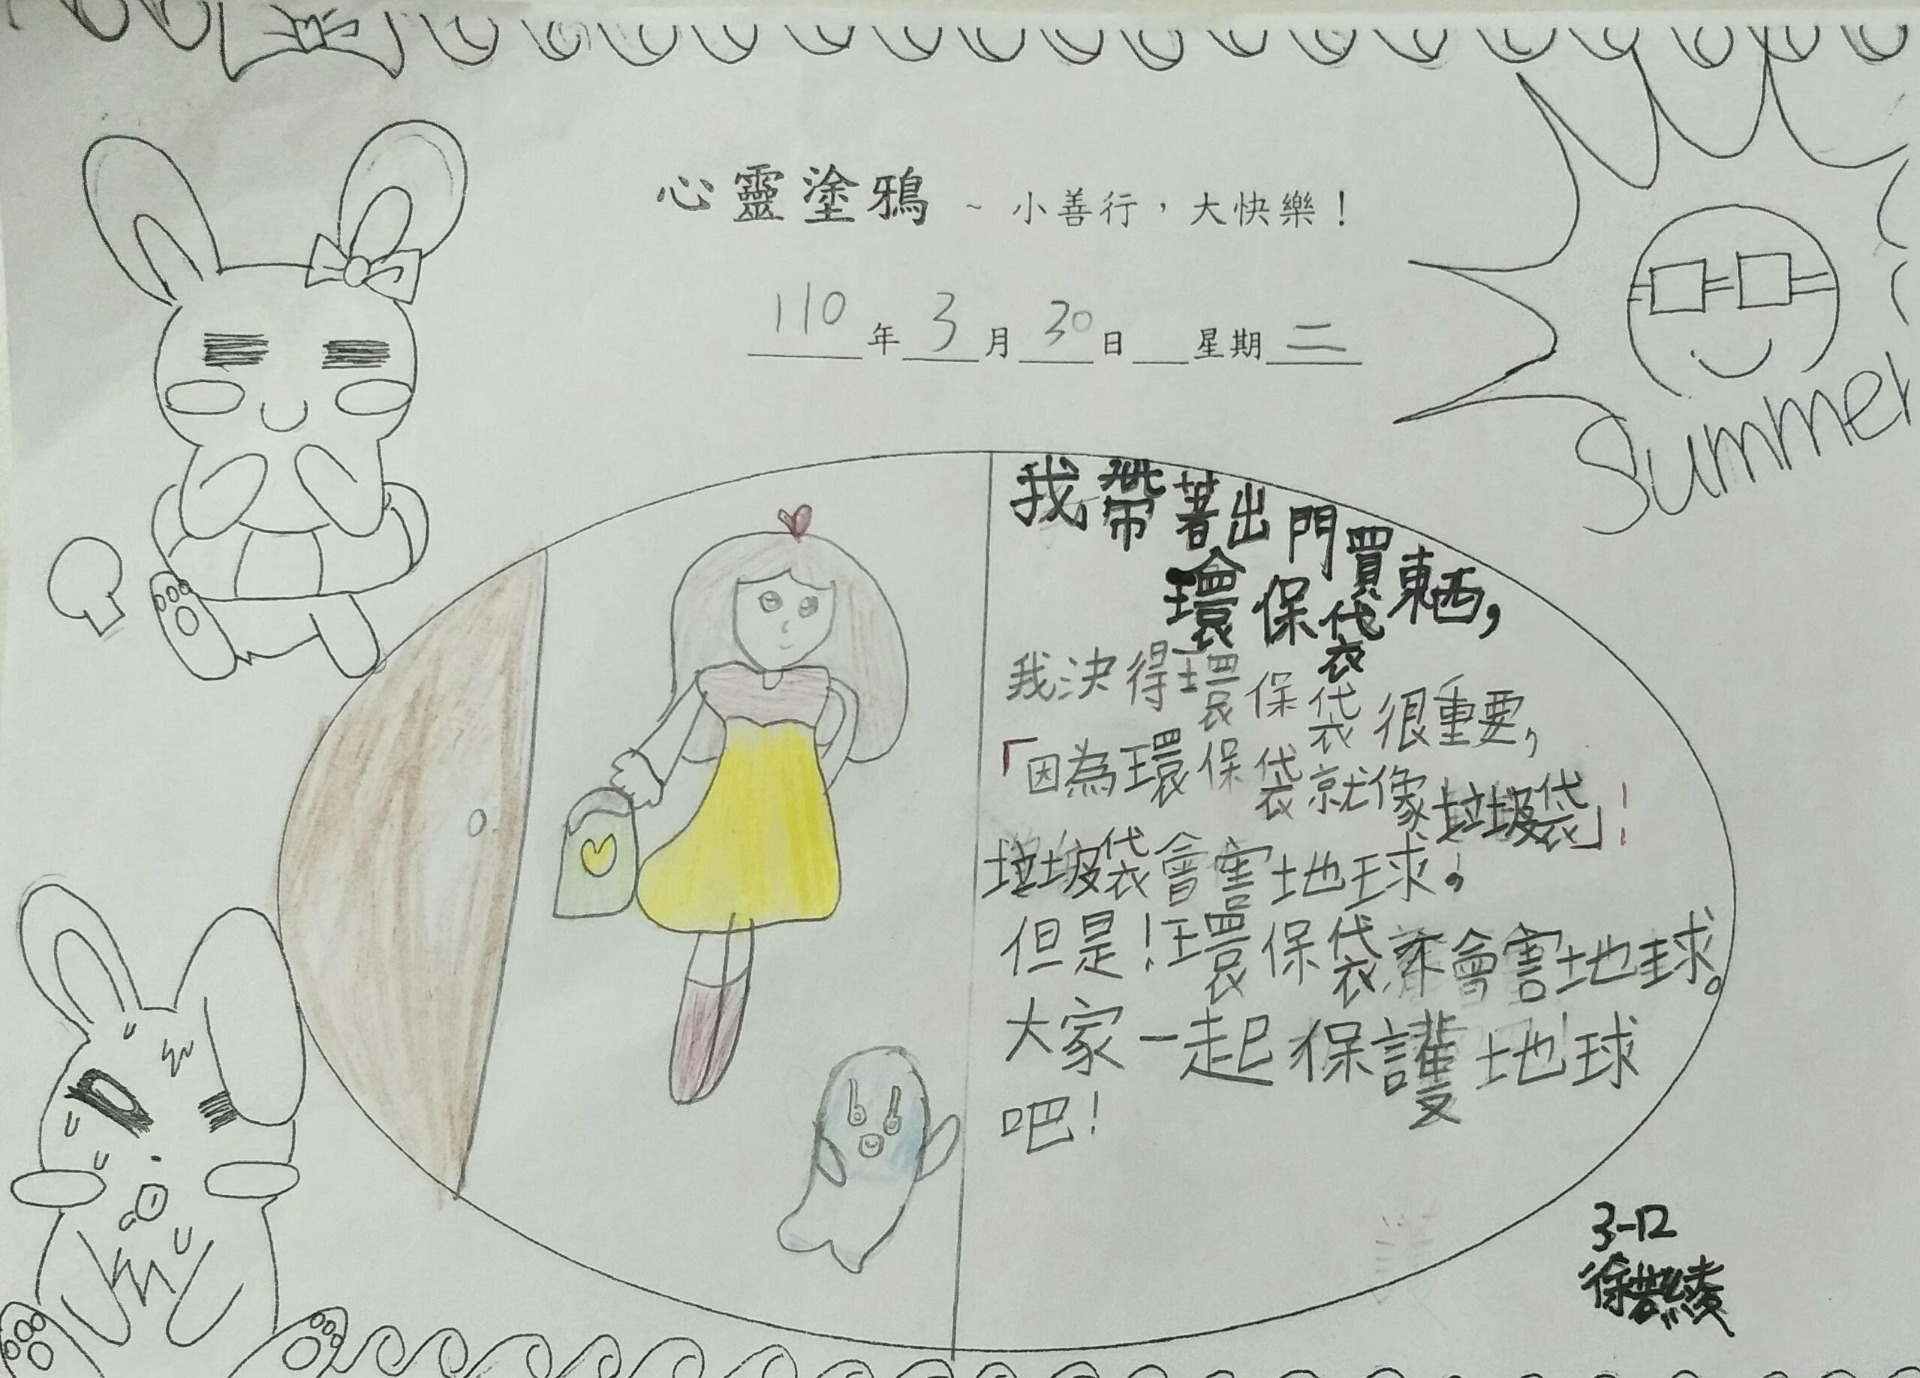 心靈塗鴉 ~ 小善行，大快樂！
110年3月30日 星期二
Summer
我帶著出門買東西，
會環保袋
我決得環保袋很重要，
「因為環保袋就像垃圾袋」！
垃圾袋會害地球，
但是！環保袋不會害地球。
大家一起保護地球
吧！
3-12